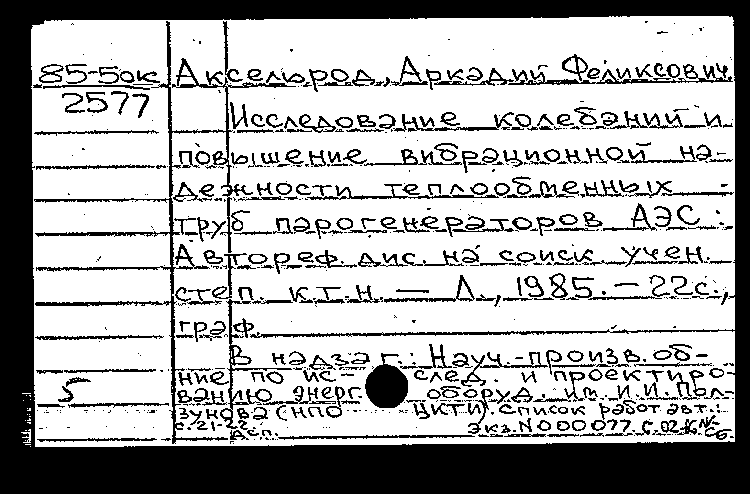 85-5ок Аксельрод, Аркадий Феликсович
2577
Исследование колебаний и
повышение вибрационной на-
дежности теплообменных
труб парогенераторов АЭС:
Автореф. дис. на соиск. учен.
степ. к.т.н. — Л., 1985. — 22с.,
граф.
В надзаг.: Науч.-произв. об-
ние по ис след. и проектиро-
5 ванию энерг. оборуд. им. И.И. Пол-
зунова (НПО ЦКТИ). Список работ авт.:
с. 21-22
Экз. N 000077.